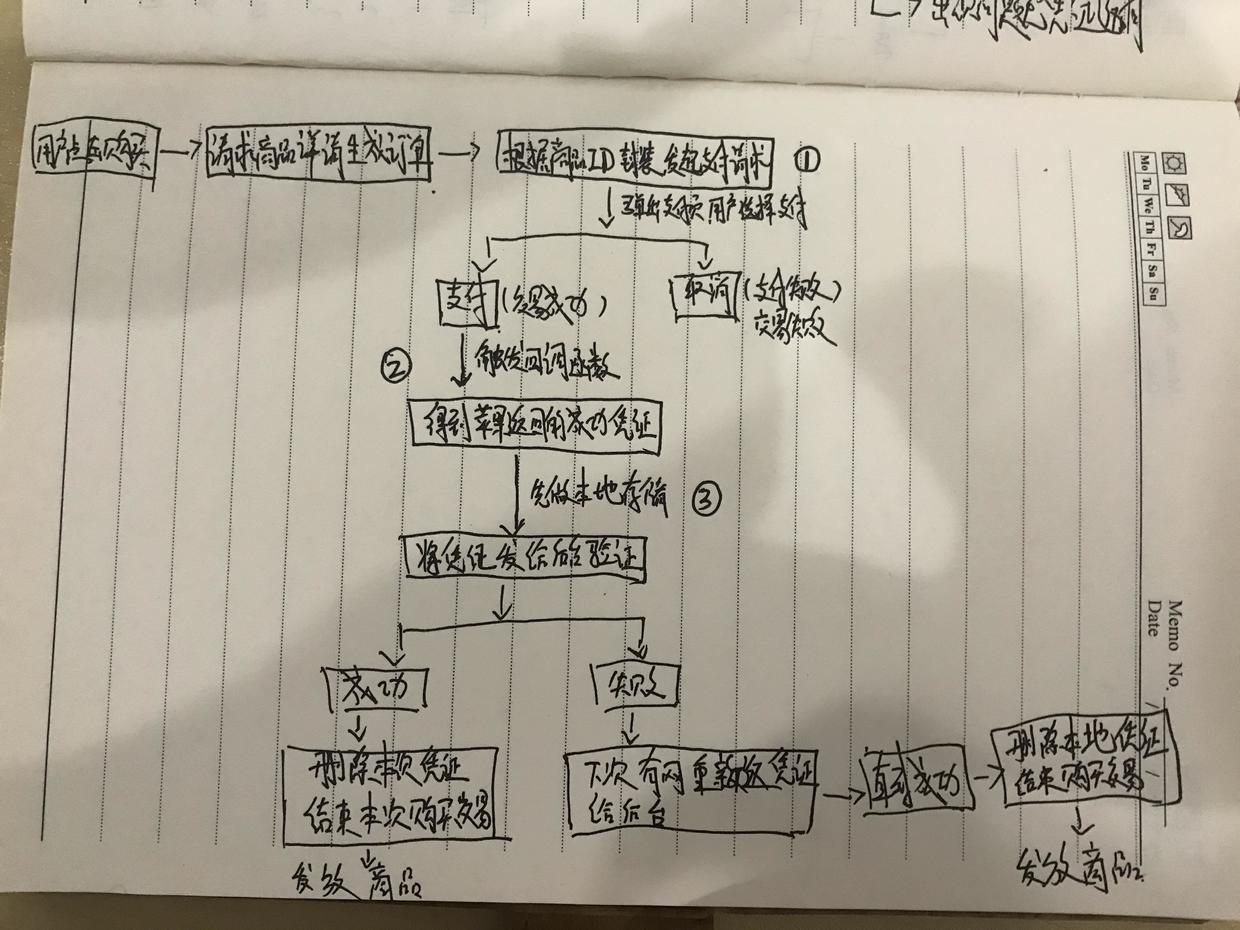 用户点击购买
请求商品详情生成订单
根据商品ID封装,发起支付请求
①
弹出支付页 用户选择支付
支付
(交易成功)
取消
(支付失败)
交易失败
②
触发回调函数
得到苹果返回的成功凭证
先做本地存储
③
将凭证发给后台验证
成功
失败
删除本次凭证
结束本次购买交易
发放商品
下次有网重新发凭证
给后台
直到成功
删除本地凭证
结束购买交易
发放商品
Mo Tu We Th Fr Sa Su
Memo No.
Date